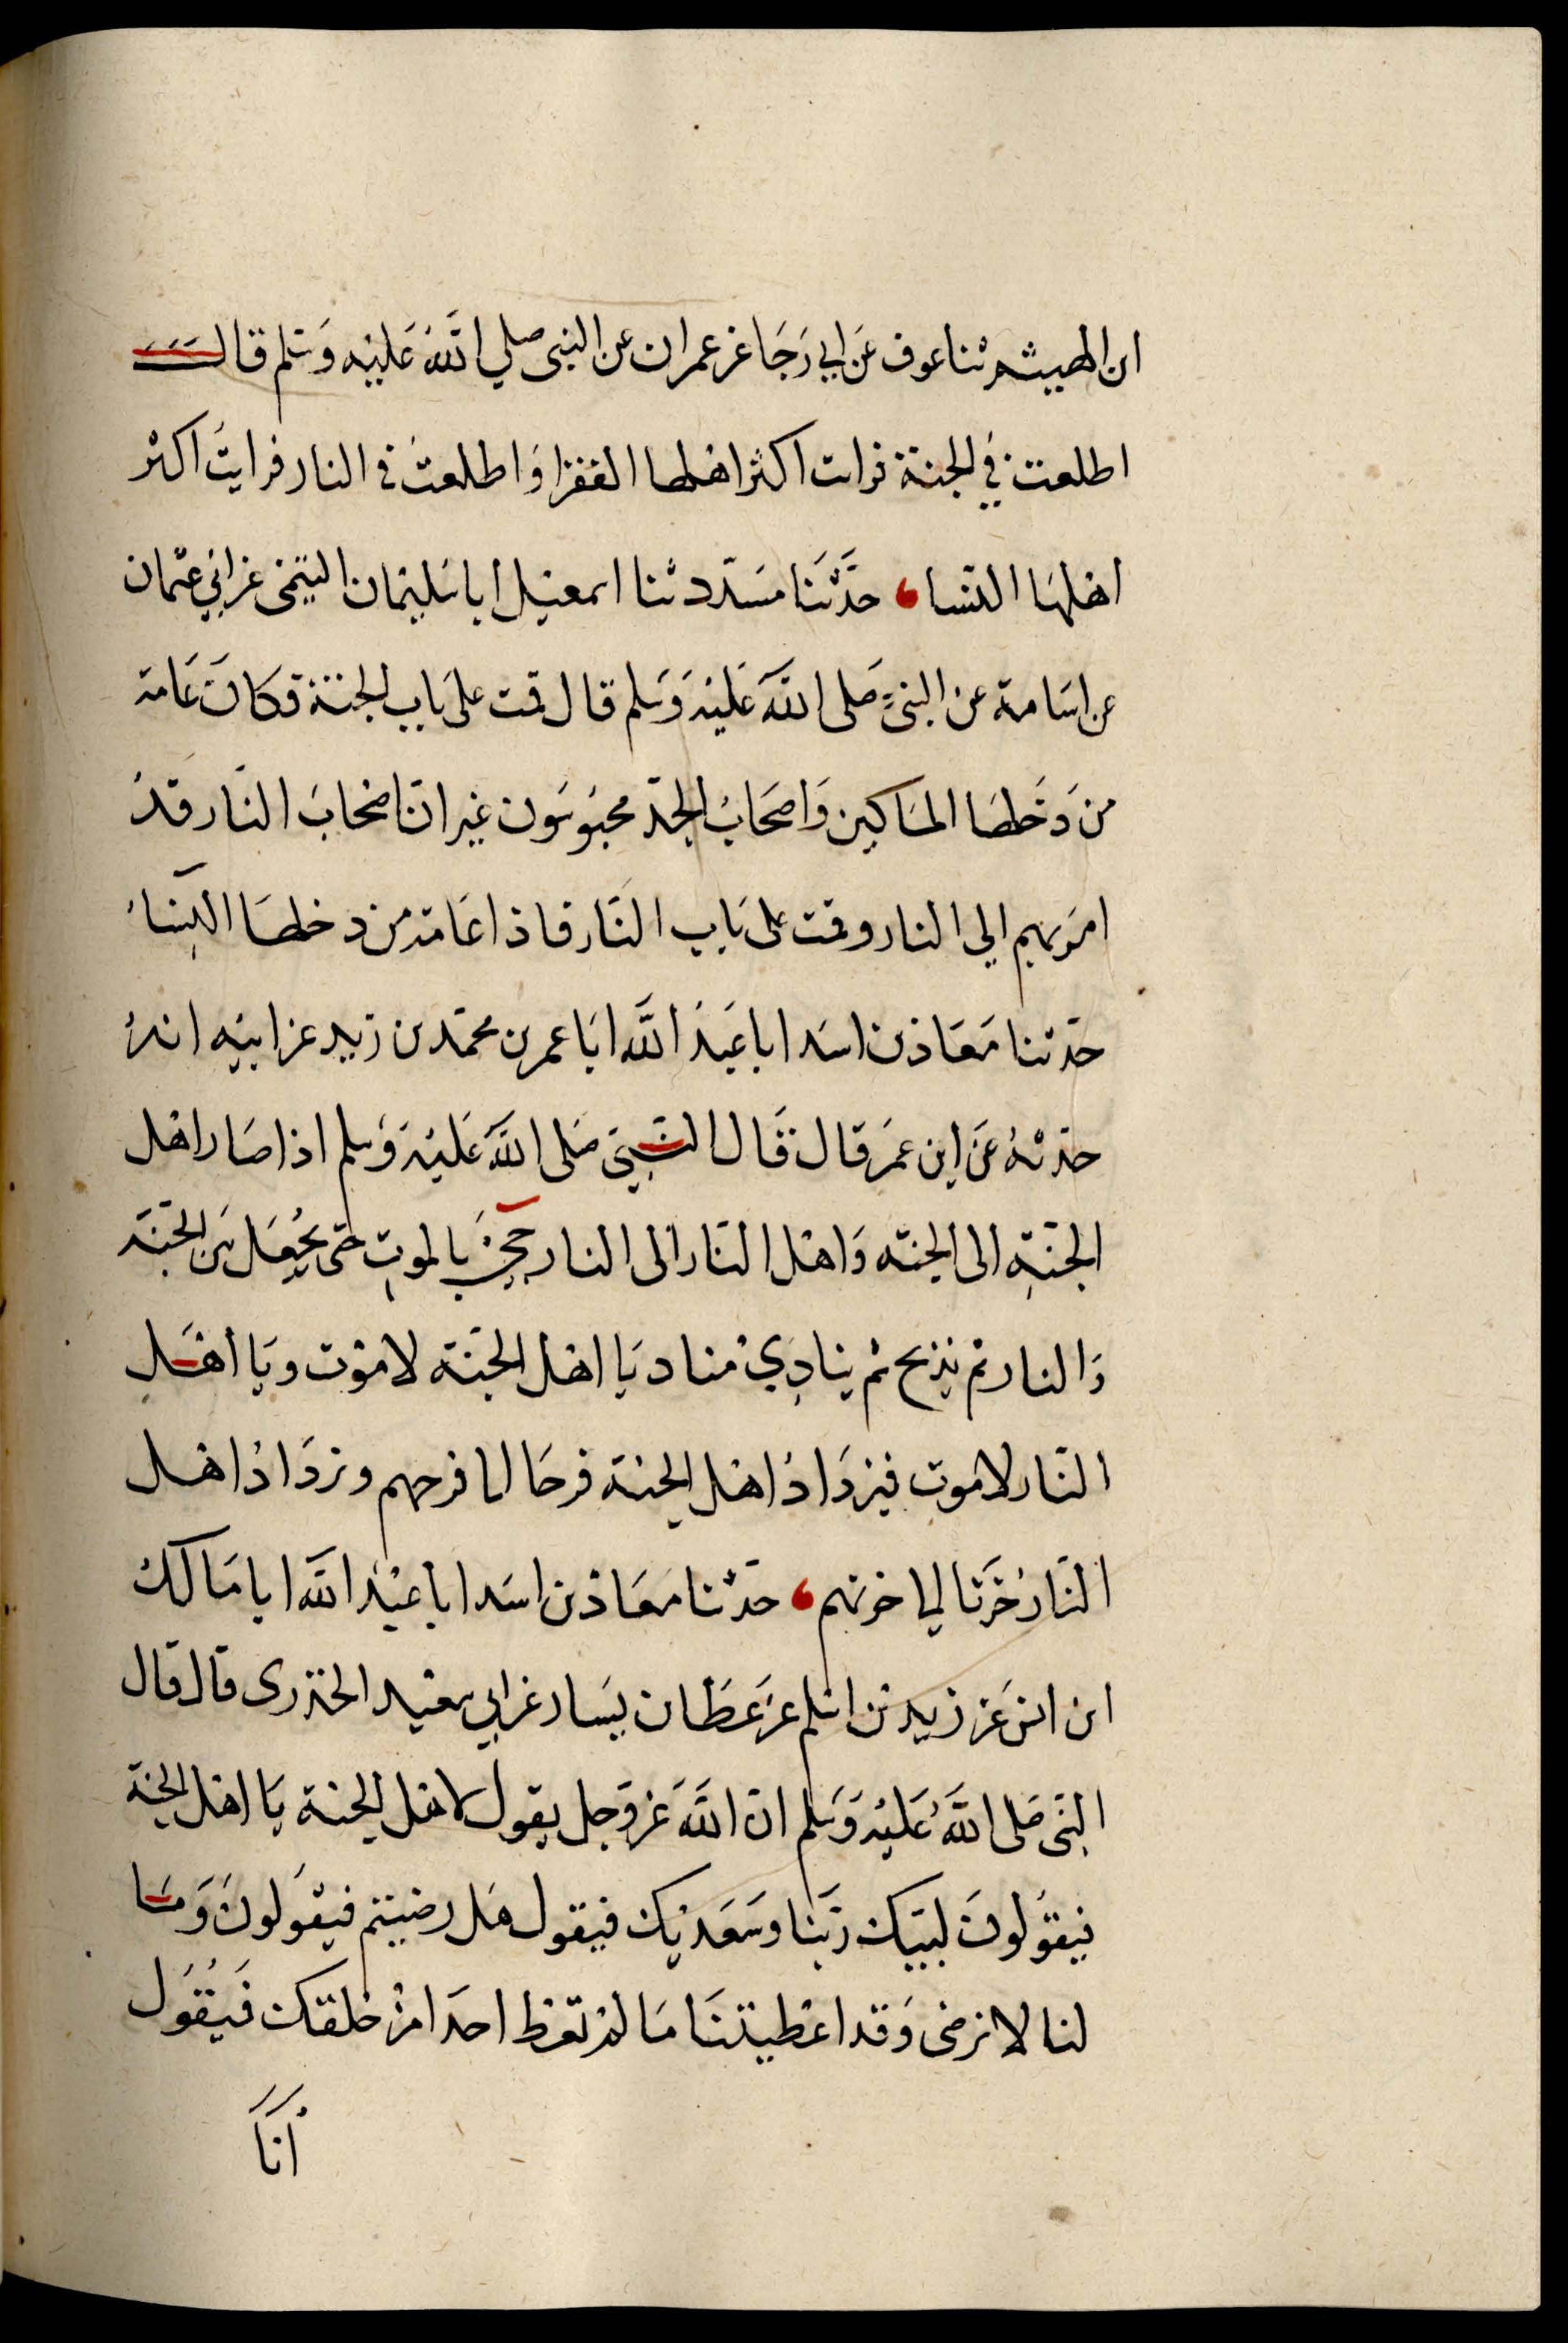 ابن الهيثم ثنا عوف عَن ابي رَجَا عن عمران عن النبى صلي اللَّه عَليْه وَسَلم قال
اطلعت في الجنة فرات اكثر اهلها الفقرا وَاطلعت فى النار فرايت اكثر
اهلهَا النسا حَدَّثَنا مسَدّد ثنا اسمعيل ابا سَليْمان التيمى عن ابي عثمان
عن اسَامة عن النبىّ صَلى اللَّه عَليْه وَسَلم قال قمت على بَاب الجنة فكانَ عَامة
من دَخَلهَا المسَاكين وَاصحَابُ الجد محبُوسُون غير ان اصْحَابَ النَّار قدْ
امرَ بهم الي النار وقمت على بَاب النَّار فاذا عَامة من دخلهَا النِّسَاءُ
حَدثنا مَعَاذ بن اسَد ابا عَبدُ اللَّه ابَا عمر بن محمّد بن زيد عن ابيْه انهُ
حَدثهُ عَن ابن عمَر قال قَال النَّبِيّ صَلى اللَّه عَليْه وَسَلم اذا صَار اهْل
الجنَّةِ الى الجنّه وَاهْل النَّار الى النار جِئَ بالموتِ حَتى يُجْعَل بَين الجَنَّة
وَالنار ثم يذبح ثم ينادِيْ مناد يَا اهْل الجَنّة لا مَوْت ويَا أهْل
النَّار لا موت فيزدَادُ اهْل الجنة فرحَا الىا فرحهم ويزدَادُ اهْل
النَّار حُزنا اليا حزنهم حَدثنا مَعَاذ بن اسَد ابا عبْدُ اللَّه ابا مَالكُ
ابن انس عَن زيد بن اسْلم عن عَطَا بن يسَار عن ابي سعيْد الخدرى قال قال
النَّبى صَلى اللَّهُ عَليْه وَسَلم انّ اللَّهَ عَز وَجل يقول لاهْل الجنة يَا اهْل الجنة
فيقولونَ لبيّك رَبّنا وسَعَديْك فيقول هَل رضيتم فيقولونَ وَمَا
لنا لا نرضى وَقد اعْطيتنَا مَا لمْ تعْط احدَا مِنْ خلقك فَيُقوُل
أنَاَ